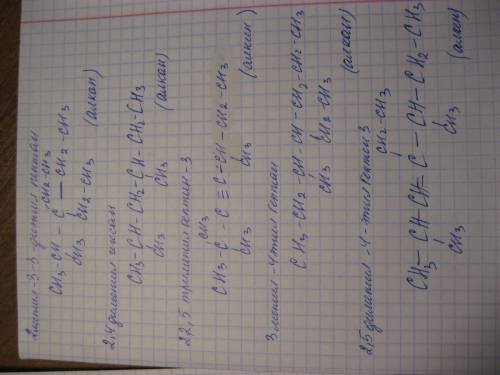 2 метил-3-3-диэтил пентан
CH2-CH3
CH3-CH - C — CH2-CH3
CH3 CH2-CH3 (алкан)
2,4 диметил гексан
CH3-CH-CH2-CH-CH2-CH3
CH3 CH3 (алкан)
2 2,5 триметил гептин-3
CH3
CH3-C - C ≡ C - CH-CH2-CH3
CH3 CH3 (алкин)
3 метил-4этил гептан
CH3-CH2-CH-CH-CH2-CH2-CH3
CH3 CH2-CH3 (алкан)
2,5 диметил-4-этил гептен 3
CH2-CH3
CH3-CH CH=C - CH-CH2-CH3
CH3 CH3 (алкен)